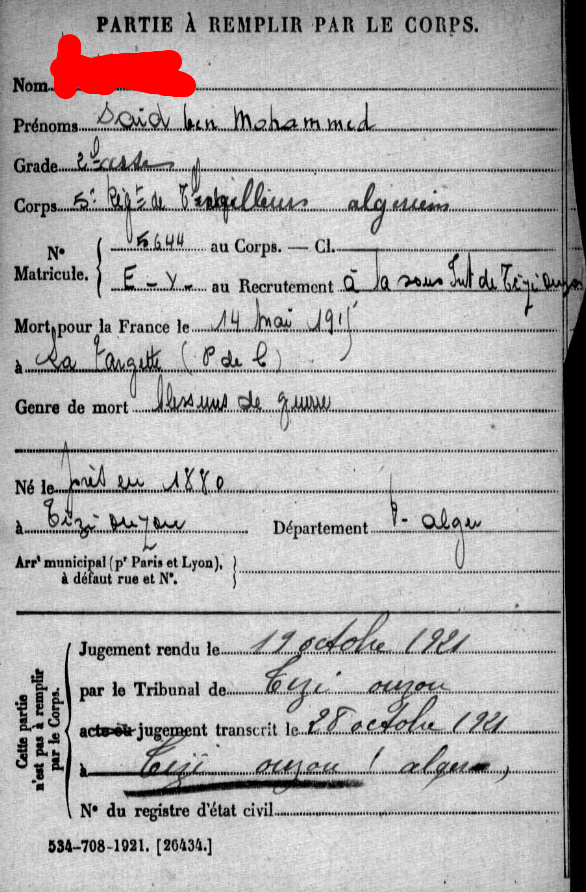 PARTIE À REMPLIR PAR LE CORPS.
Nom
Prénoms Said ben Mohammed
Grade 2e classe
Corps 5e Régt de Tirailleurs algériens
N° Matricule. 5644 au Corps. — Cl.
E - V - au Recrutement à la sous Int de Tizi ouzou
Mort pour la France le 14 mai 1915
à La Targette (P de C)
Genre de mort blessures de guerre
Né le prés en 1880
à Tizi ouzou Département alger
Arrt municipal (pr Paris et Lyon), à défaut rue et N°.
Cette partie n'est pas à remplir par le Corps.
Jugement rendu le 19 octobre 1921
par le Tribunal de Tizi ouzou
acte ou jugement transcrit le 28 octobre 1921
à Tizi ouzou (alger)
N° du registre d'état civil
534-708-1921. [26434.]